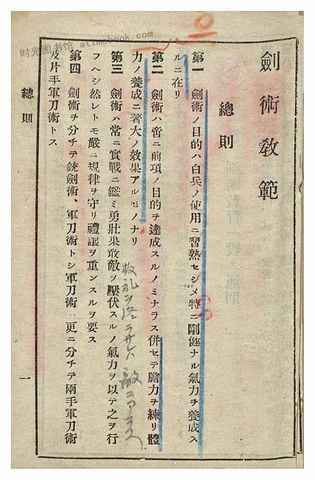 劍術教範
總則
第一 劍術ノ目的ハ白兵ノ使用ニ習熟セシメ特ニ剛健ナル氣力ヲ養成ス
ルニ在リ
第二 劍術ハ啻ニ前項ノ目的ヲ達成スルノミナラス併セテ膽力ヲ練リ體
力ノ養成ニ著大ノ效果アルモノナリ
第三 劍術ハ常ニ實戰ニ鑑ミ勇壯果敢敵ヲ壓伏スルノ氣力ヲ以テ之ヲ行
フヘシ然レトモ嚴ニ規律ヲ守リ禮讓ヲ重ンスルヲ要ス
第四 劍術ヲ分チテ銃劍術、軍刀術トシ軍刀術ハ更ニ分チテ兩手軍刀術
及片手軍刀術トス
總則
一